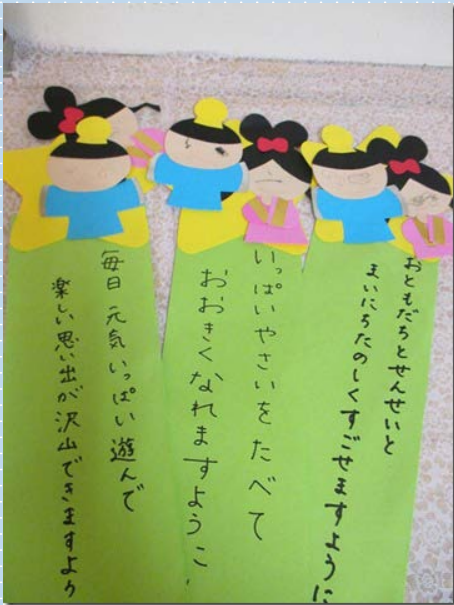 おともだちとせんせいと
まいにちたのしくすごせますように
いっぱいやさいをたべて
おおきくなれますように
毎日 元気いっぱい遊んで
楽しい思い出が沢山できますよう